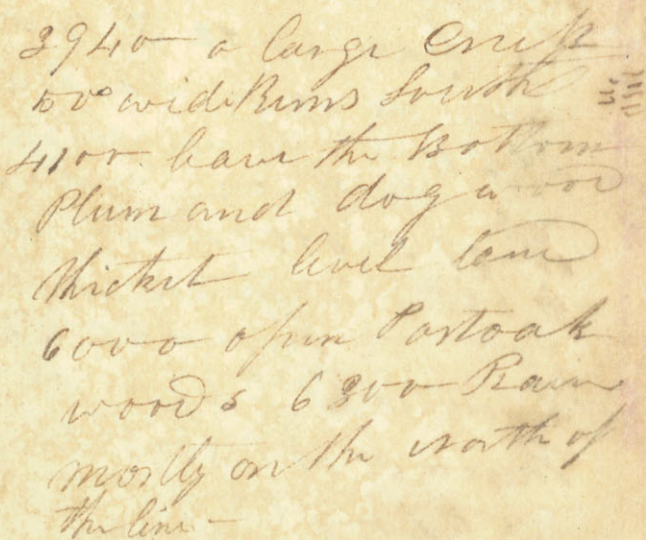 3940 a large Creek
50 wide Runs South
4100 leave the Bottom
Plum and dogwood
thicket level land
6000 open Postoak
woods 6300
mostly on the north of
the line -